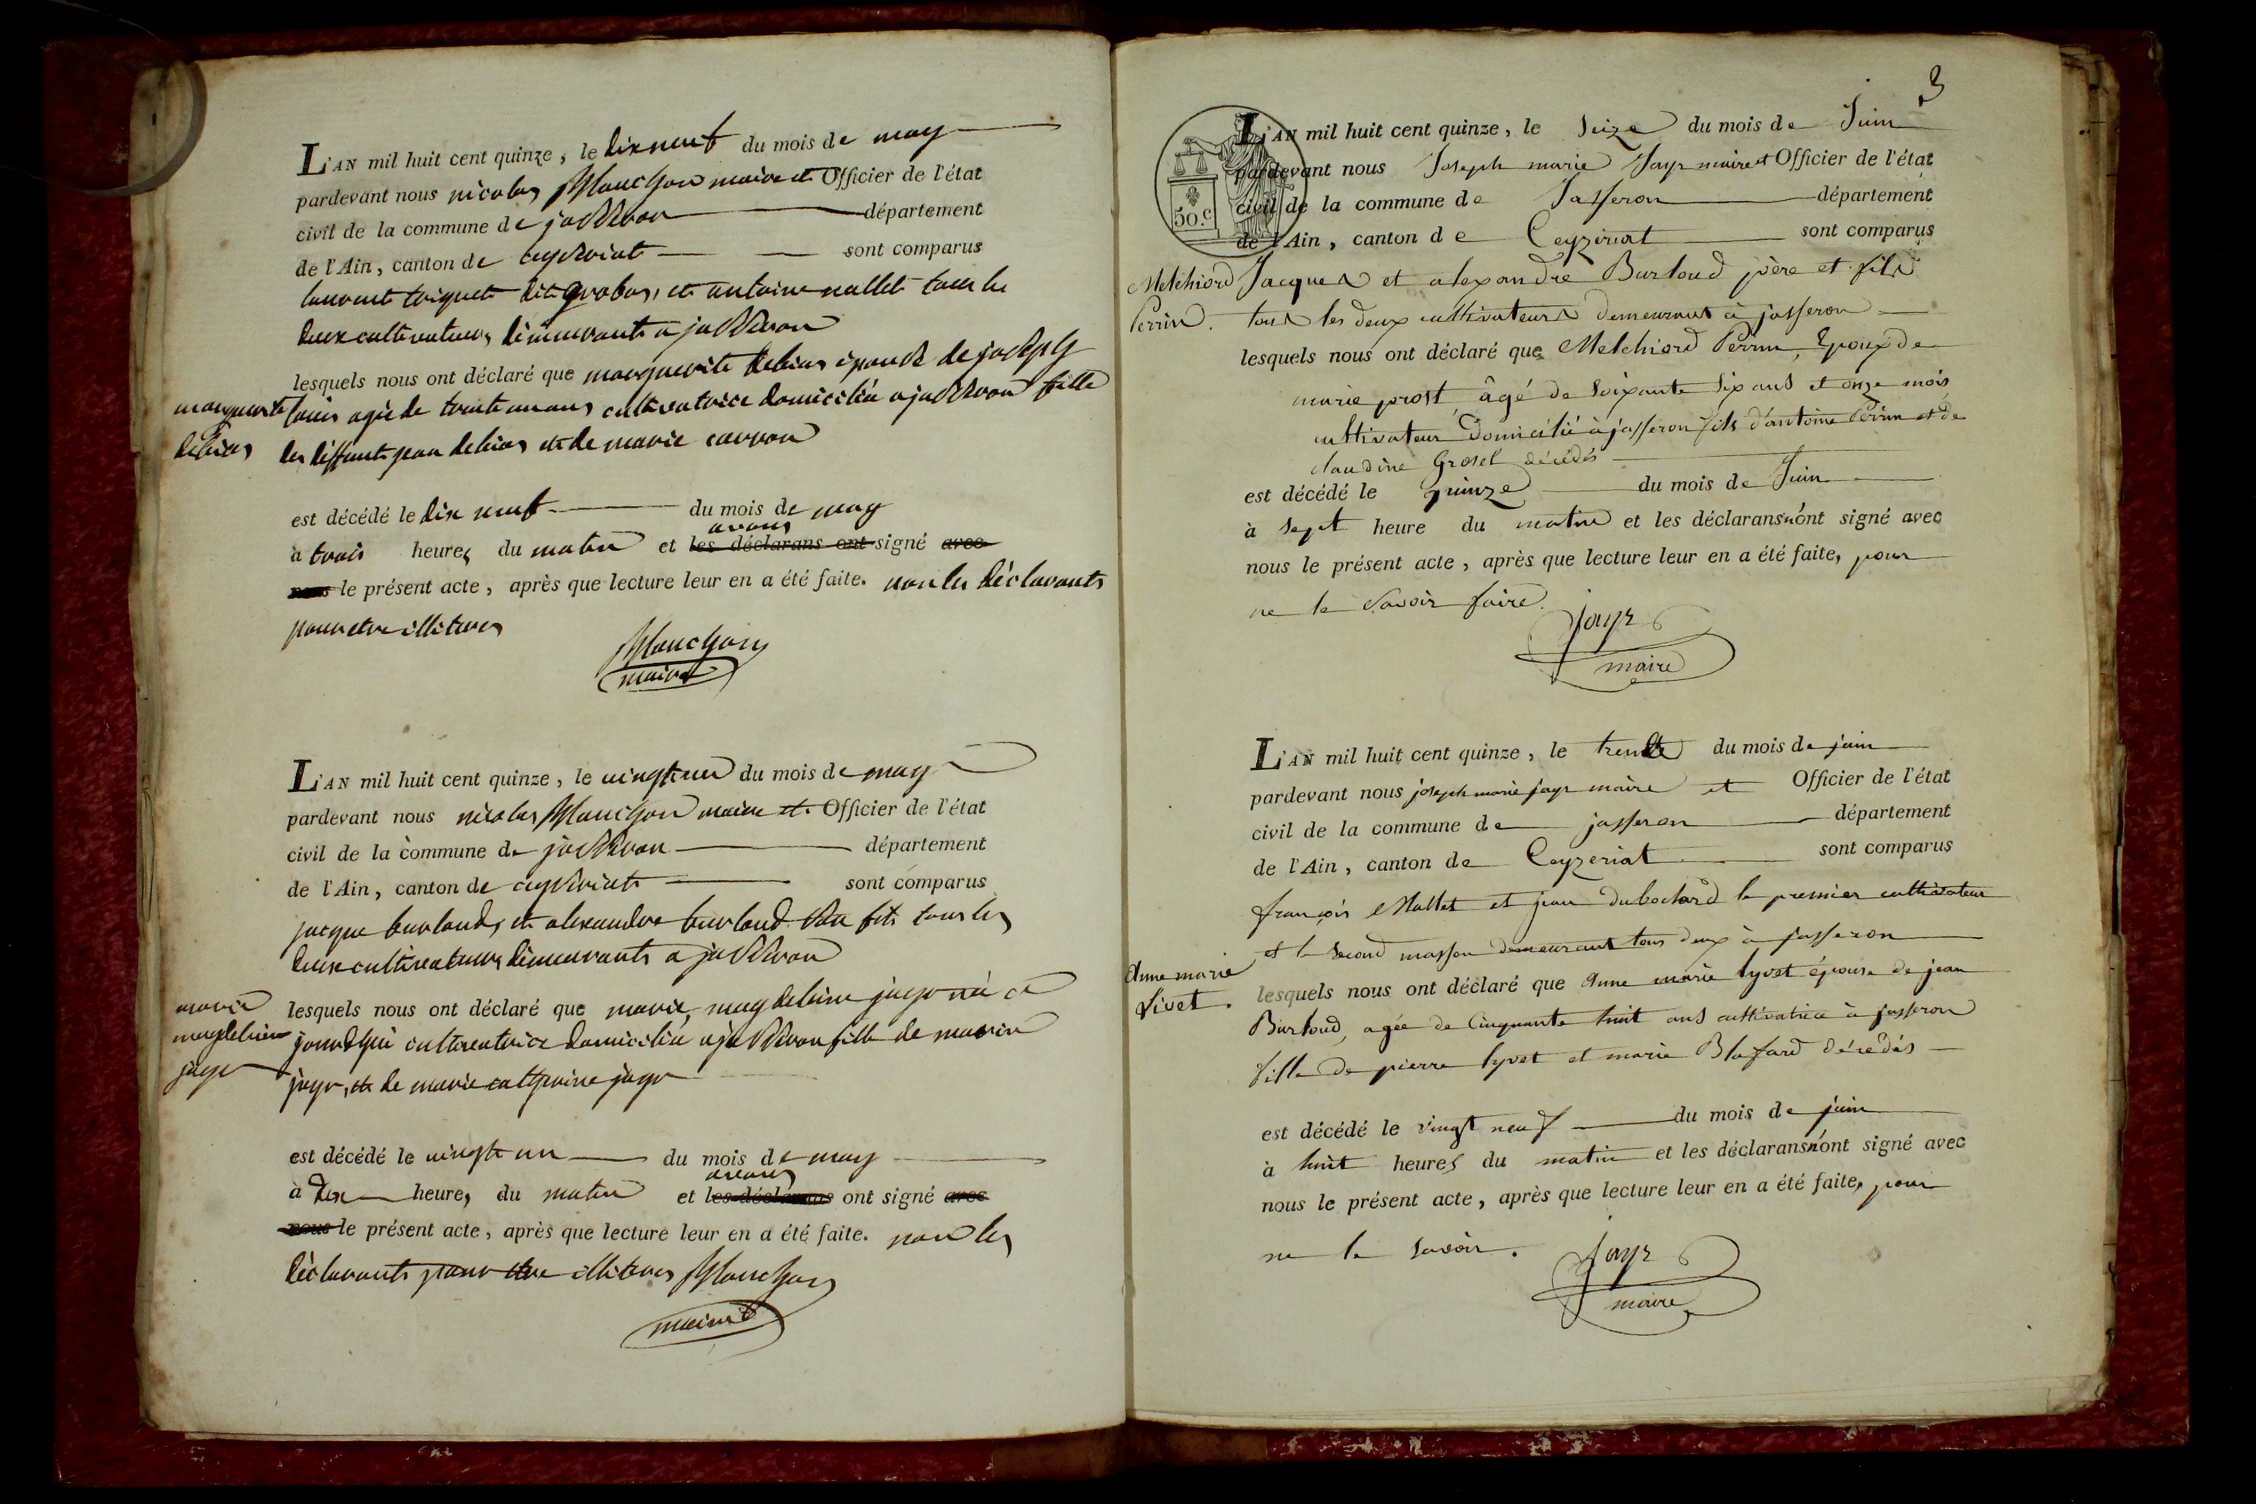 L'AN mil huit cent quinze, le dixneuf du mois de may
pardevant nous nicolas Planchon maire et Officier de l'état
civil de la commune de jasseron département
de l'Ain, canton de ceyseriat sont comparus
laurent toiquet dit grobas, et antoine nallet tous les
deux cultivateurs demeurants a jasseron
lesquels nous ont déclaré que marguerite debias epouse de joseph
louis agée de trente un ans cultivatrice domiciliée a jasseron fille
marguerite
debias
des deffunts jean debias et de marie carron
est décédé le dix neuf du mois de may
à trois heures du matin et avons les déclarans ont signé avec
nous le présent acte, après que lecture leur en a été faite. non les déclarants
pour etre illiteres
Planchon
maire
L'AN mil huit cent quinze, le vingt un du mois de may
pardevant nous nicolas Planchon maire et Officier de l'état
civil de la commune de jasseron département
de l'Ain, canton de ceyseriat sont comparus
jacque burloud, et alexandre burloud son fils tous les
deux cultivateurs demeurants a jasseron
marie
magdeleine
jayr
lesquels nous ont déclaré que marie magdeleine jayr née ce
jourd'hui cultivatrice domiciliée a jasseron fille de marin
jayr, et de marie catherine jayr
est décédé le vingt un du mois de may
à dix heures du matin et avons les déclarans ont signé avec
nous le présent acte, après que lecture leur en a été faite. non les
déclarants pour etre illiteres Planchon
maire
3
L'AN mil huit cent quinze, le seize du mois de Juin
pardevant nous Joseph marie Jayr maire et Officier de l'état
civil de la commune de Jasseron département
de l'Ain, canton de Ceyzeriat sont comparus
50.c
Melchiord
Perrin.
Jacques et alexandre Burloud père et fils
tous les deux cultivateurs demeurant à jasseron
lesquels nous ont déclaré que Melchiord Perrin, Epoux de
marie prost âgé de soixante six ans et onze mois
cultivateur domicilié à jasseron fils d'antoine Perrin et de
claudine Grosel décédés
est décédé le quinze du mois de Juin
à sept heure du matin et les déclarans n'ont signé avec
nous le présent acte, après que lecture leur en a été faite, pour
ne le savoir faire.
Jayr
maire
L'AN mil huit cent quinze, le trente du mois de juin
pardevant nous joseph marie jayr maire et Officier de l'état
civil de la commune de jasseron département
de l'Ain, canton de Ceyzeriat sont comparus
françois Mallet et jean dubochard le premier cultivateur
et le second masson demeurant tous deux à jasseron
Anne marie
Livet.
lesquels nous ont déclaré que Anne marie lyvet épouse de jean
Burloud, agée de Cinquante huit ans cultivatrice à jasseron
fille de pierre lyvet et marie Blafard décédés
est décédé le vingt neuf du mois de juin
à huit heures du matin et les déclarans n'ont signé avec
nous le présent acte, après que lecture leur en a été faite, pour
ne le savoir.
Jayr
maire